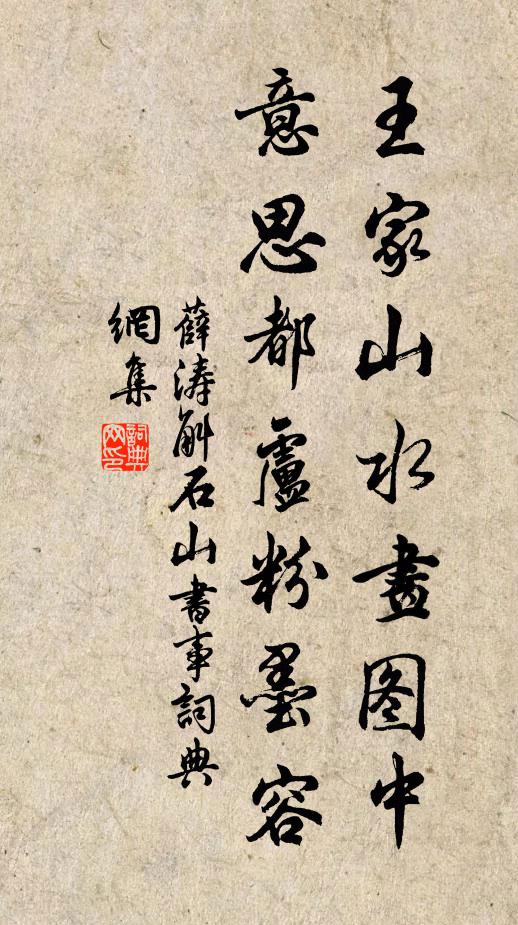 王家山水畫图中
意思都盧粉墨容
薛濤斛石山書事詞典
網集
詞典
网印